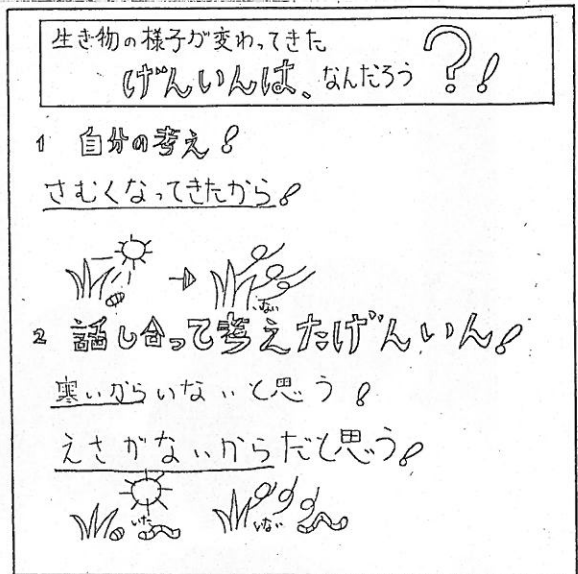 生き物の様子が変わってきた
げんいんは、なんだろう?!
1 自分の考え!
さむくなってきたから!
いない
2 話し合って考えたげんいん!
寒いからいないと思う!
えさがないからだと思う!
いた いない